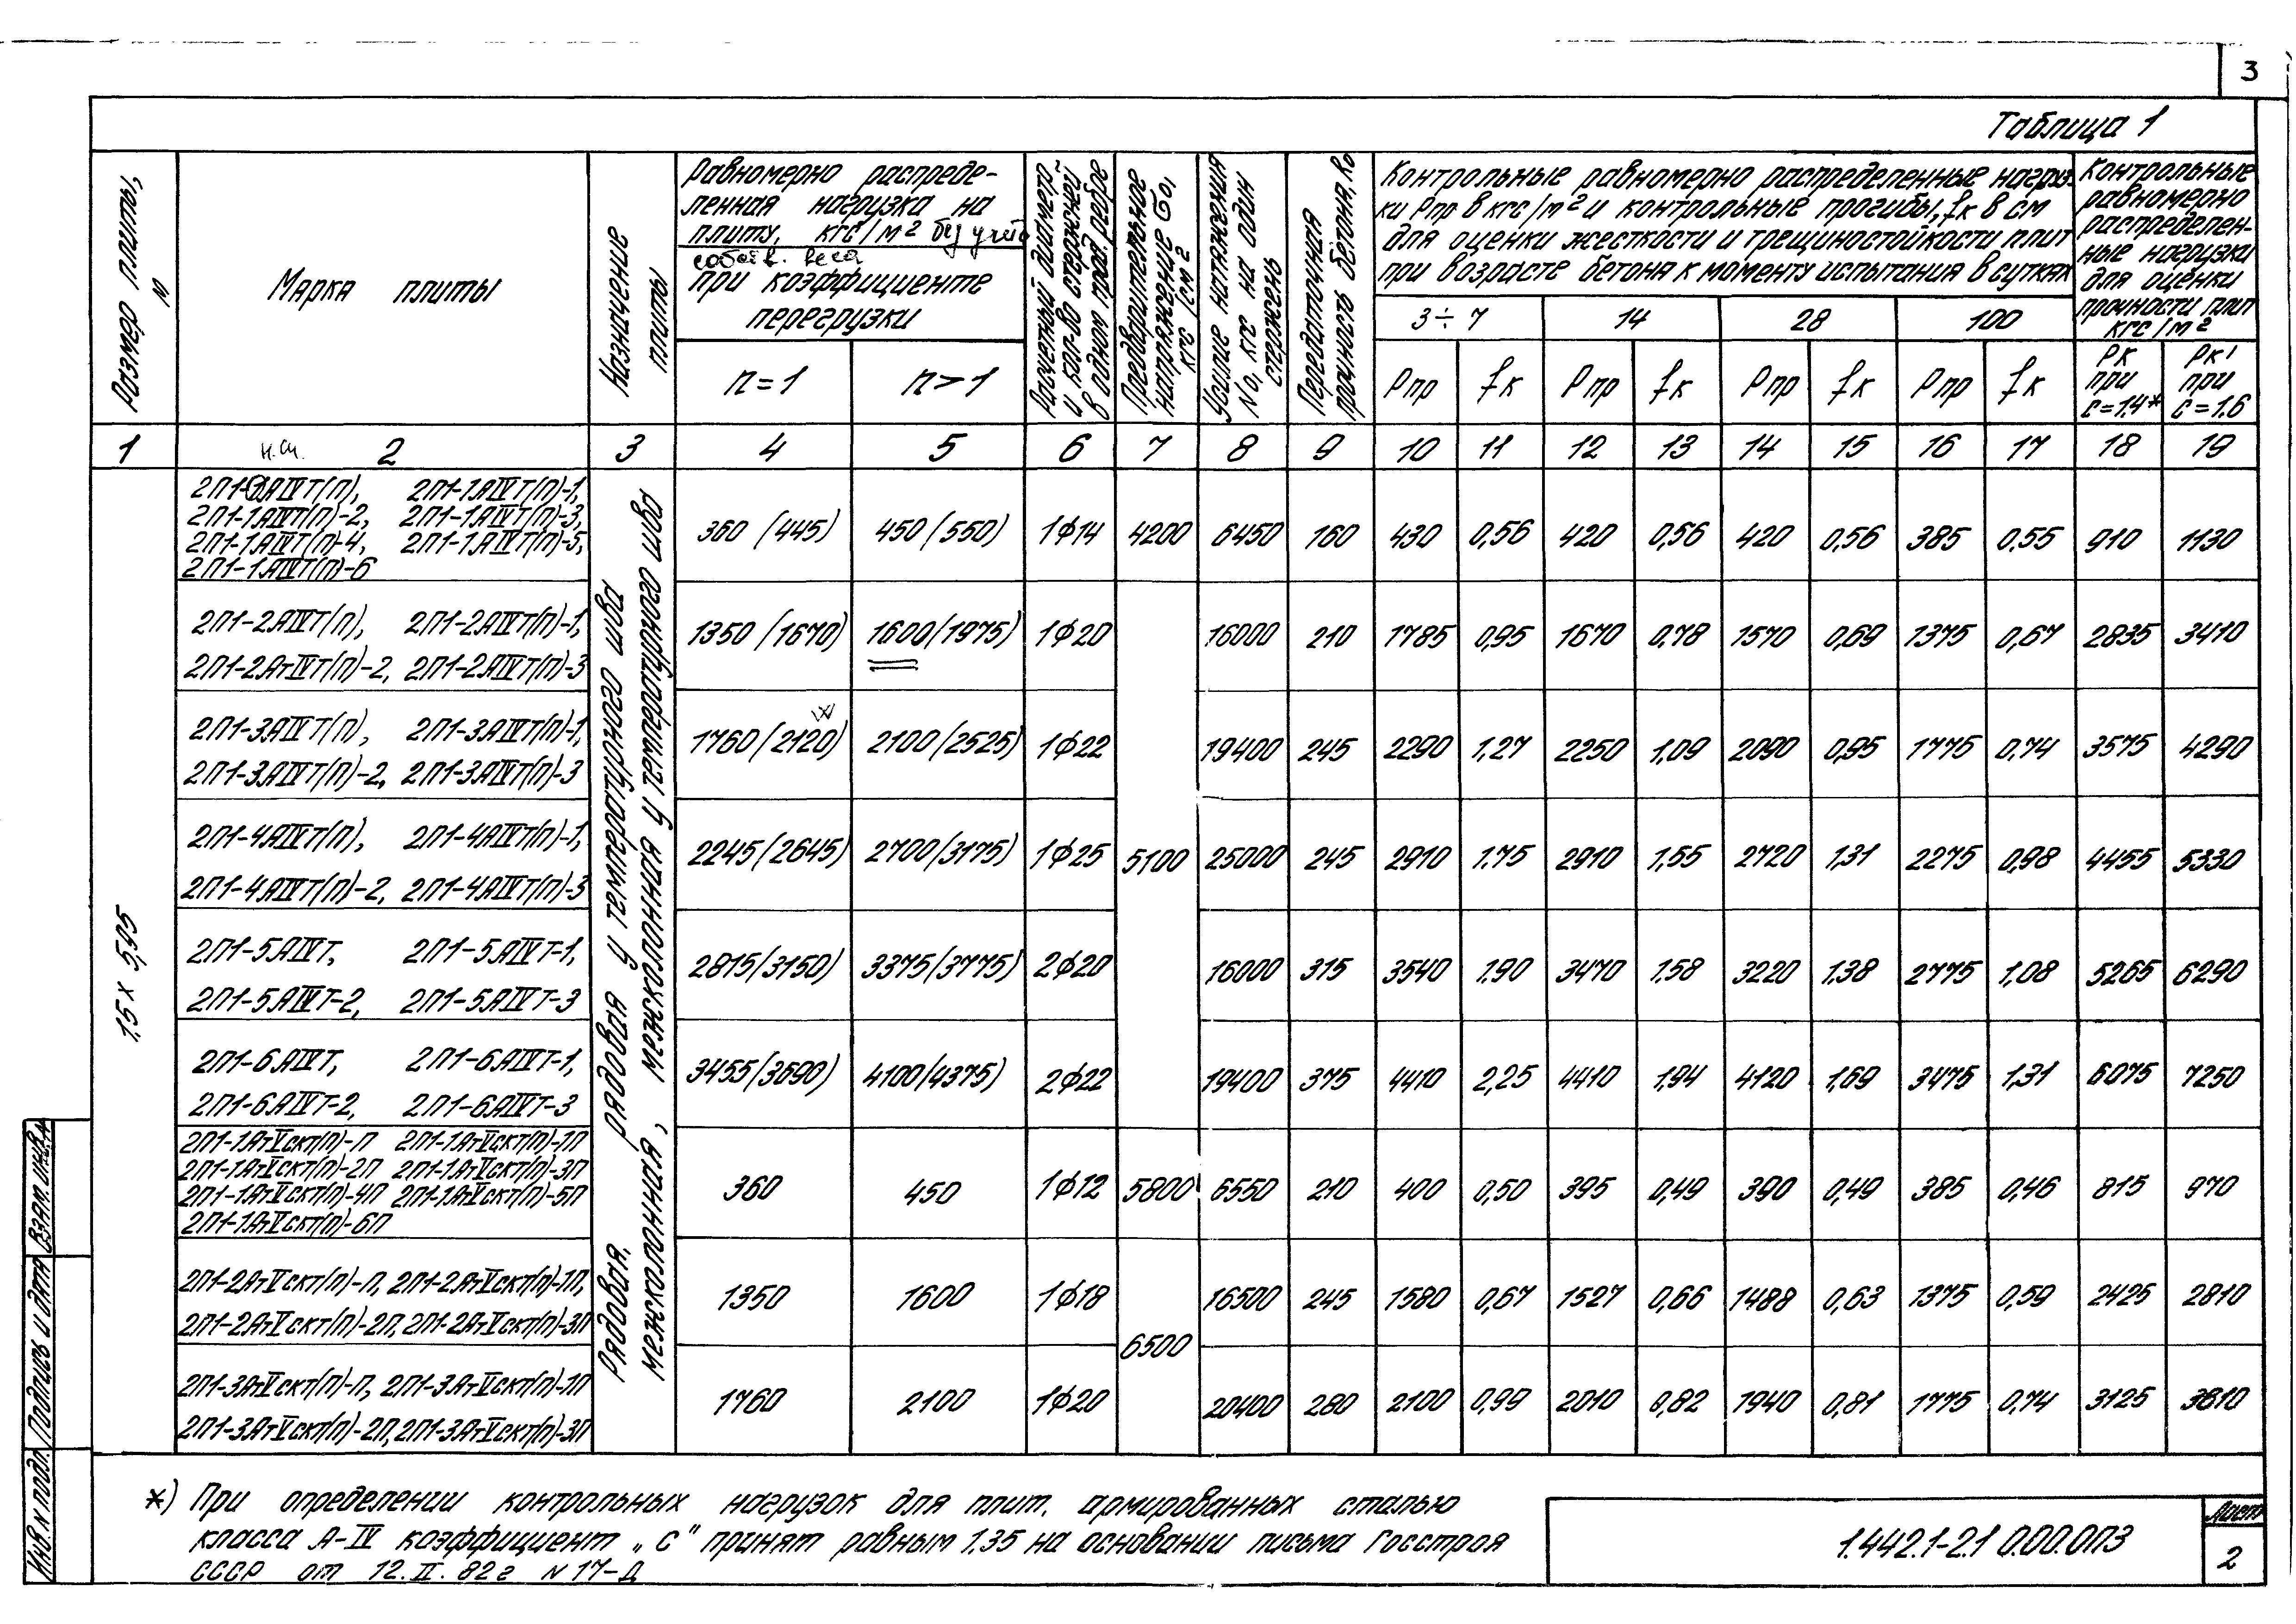 3
Таблица 1
Размер плиты, м
Марка плиты
Назначение плиты
Равномерно распреде-
ленная нагрузка на
плиту, кгс/м² без учёт
собств. веса
при коэффициенте
перегрузки
n=1
n>1
Расчетный диаметр
и кол-во стержней
в одном прод. ребре
Предварительное
напряжение σо,
кгс/см²
Усилие натяжения
No, кгс на один
стержень
Передаточная
прочность бетона, Ro
Контрольные равномерно распределенные нагруз-
ки Рпр в кгс/м² и контрольные прогибы, fк в см
для оценки жесткости и трещиностойкости плит
при возрасте бетона к моменту испытания в сутках
3÷7 14 28 100
Рпр fк Рпр fк Рпр fк Рпр fк
Контрольные
равномерно
распределен-
ные нагрузки
для оценки
прочности плит
кгс/м²
Рк при с=1,4*
Рк' при с=1.6
1 2 3 4 5 6 7 8 9 10 11 12 13 14 15 16 17 18 19
1.5 х 5,95
Рядовая, рядовая у температурного шва
межколонная, межколонная у температурного шва
2П1-1АIVТ(П), 2П1-1АIVТ(П)-1,
2П1-1АIVТ(П)-2, 2П1-1АIVТ(П)-3,
2П1-1АIVТ(П)-4, 2П1-1АIVТ(П)-5,
2П1-1АIVТ(П)-6
360 (445) 450 (550) 1ϕ14 4200 6450 160 430 0,56 420 0,56 420 0,56 385 0.55 910 1130
2П1-2АIVТ(П), 2П1-2АIVТ(П)-1,
2П1-2АтIVТ(П)-2, 2П1-2АIVТ(П)-3
1350 (1670) 1600 (1975) 1ϕ20 16000 210 1785 0,95 1670 0,78 1570 0,69 1375 0,67 2835 3410
2П1-3АIVТ(П), 2П1-3АIVТ(П)-1,
2П1-3АIVТ(П)-2, 2П1-3АIVТ(П)-3
1760 (2120) 2100 (2525) 1ϕ22 19400 245 2290 1,27 2250 1,09 2090 0,95 1775 0,74 3575 4290
2П1-4АIVТ(П), 2П1-4АIVТ(П)-1,
2П1-4АIVТ(П)-2, 2П1-4АIVТ(П)-3
2245 (2645) 2700 (3175) 1ϕ25 5100 25000 245 2910 1.75 2910 1,55 2720 1,31 2275 0,98 4455 5330
2П1-5АIVТ, 2П1-5АIVТ-1,
2П1-5АIVТ-2, 2П1-5АIVТ-3
2815 (3150) 3375 (3775) 2ϕ20 16000 315 3540 1.90 3470 1.58 3220 1.38 2775 1,08 5265 6290
2П1-6АIVТ, 2П1-6АIVТ-1,
2П1-6АIVТ-2, 2П1-6АIVТ-3
3455 (3690) 4100 (4375) 2ϕ22 19400 375 4410 2,25 4410 1,94 4120 1,69 3475 1,31 6075 7250
2П1-1АтVскт(п)-П 2П1-1АтVскт(п)-1П
2П1-1АтVскт(п)-2П 2П1-1АтVскт(п)-3П
2П1-1АтVскт(п)-4П 2П1-1АтVскт(п)-5П
2П1-1АтVскт(п)-6П
360 450 1ϕ12 5800 6550 210 400 0,50 395 0,49 390 0,49 385 0,46 815 970
2П1-2АтVскт(п)-П, 2П1-2АтVскт(п)-1П,
2П1-2АтVскт(п)-2П, 2П1-2АтVскт(п)-3П
1350 1600 1ϕ18 16500 245 1580 0,67 1527 0,66 1488 0,63 1375 0,59 2425 2810
6500
2П1-3АтVскт(п)-П, 2П1-3АтVскт(п)-1П
2П1-3АтVскт(п)-2П, 2П1-3АтVскт(п)-3П
1760 2100 1ϕ20 20400 280 2100 0,99 2010 0,82 1940 0,81 1775 0,74 3125 3610
*) При определении контрольных нагрузок для плит. армированных сталью
класса А-IV коэффициент „с" принят равным 1.35 на основании письма Госстроя
СССР от 12.II.82г N 17-Д
1.442.1-2.1 0.00.0ПЗ
Лист
2
Взам. инв. N
Подпись и дата
Инв N подл.